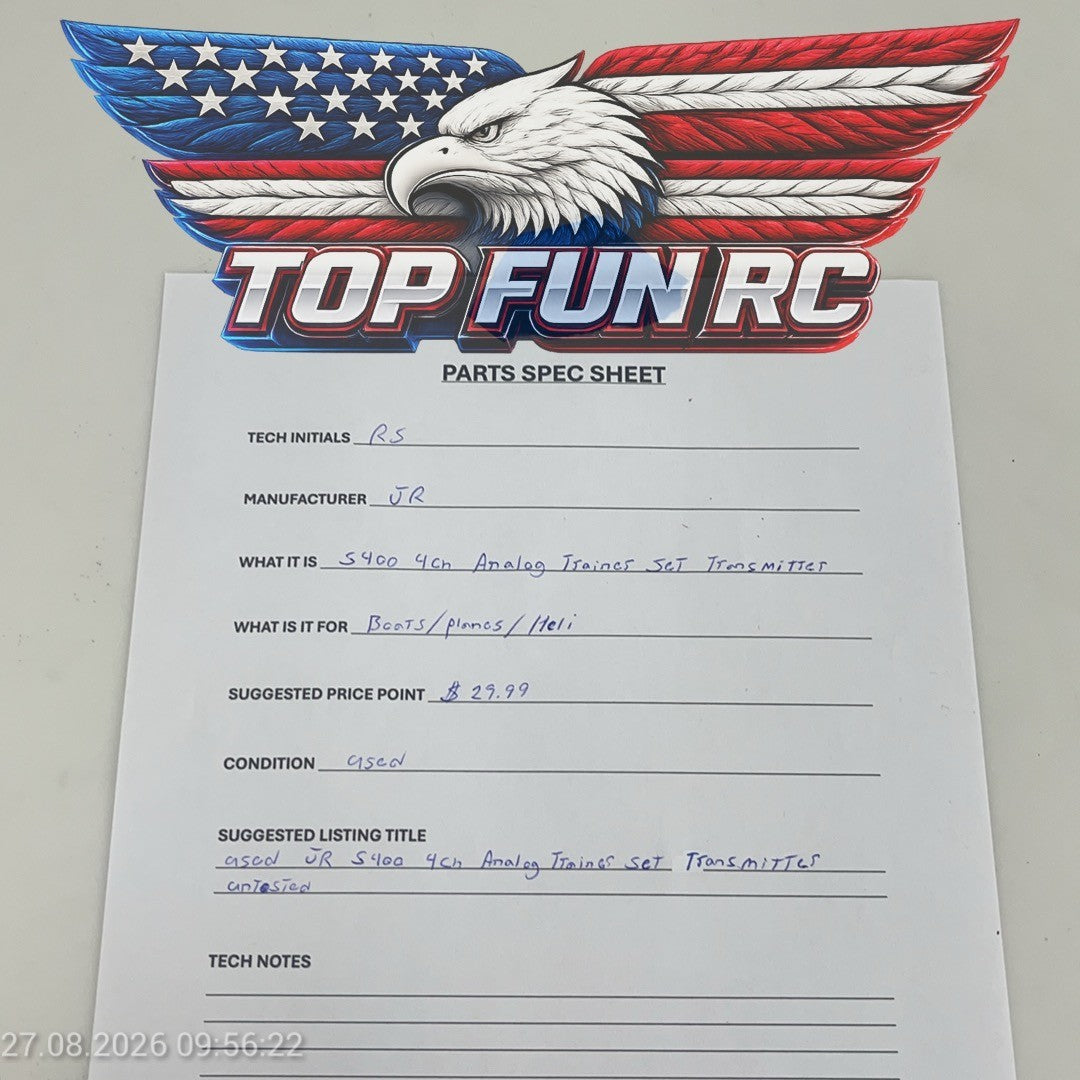 TOP FUN RC
PARTS SPEC SHEET
TECH INITIALS RS
MANUFACTURER JR
WHAT IT IS S400 4ch Analog Trainer Set Transmitter
WHAT IS IT FOR Boats/planes/Heli
SUGGESTED PRICE POINT $ 29.99
CONDITION used
SUGGESTED LISTING TITLE
used JR S400 4ch Analog Trainer Set Transmitter
untested
TECH NOTES
27.08.2026 09:56:22